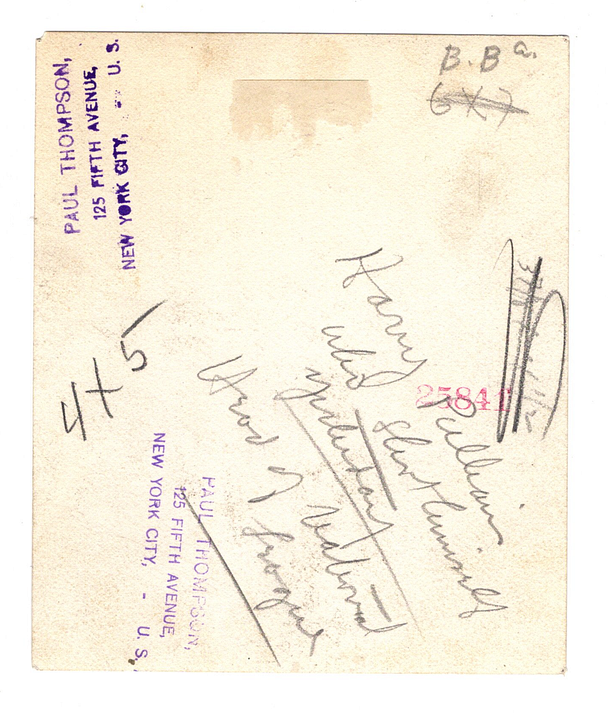 PAUL THOMPSON,
125 FIFTH AVENUE,
NEW YORK CITY, - U. S.
B. B a.
6x7
4x5
25841
Harry Pulliam
who shot himself
yesterday
Head of National
League
PAUL THOMPSON,
125 FIFTH AVENUE,
NEW YORK CITY, - U. S.